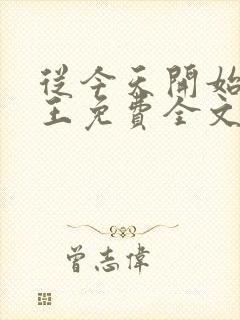 從今天開始
王免費全文
曾志偉